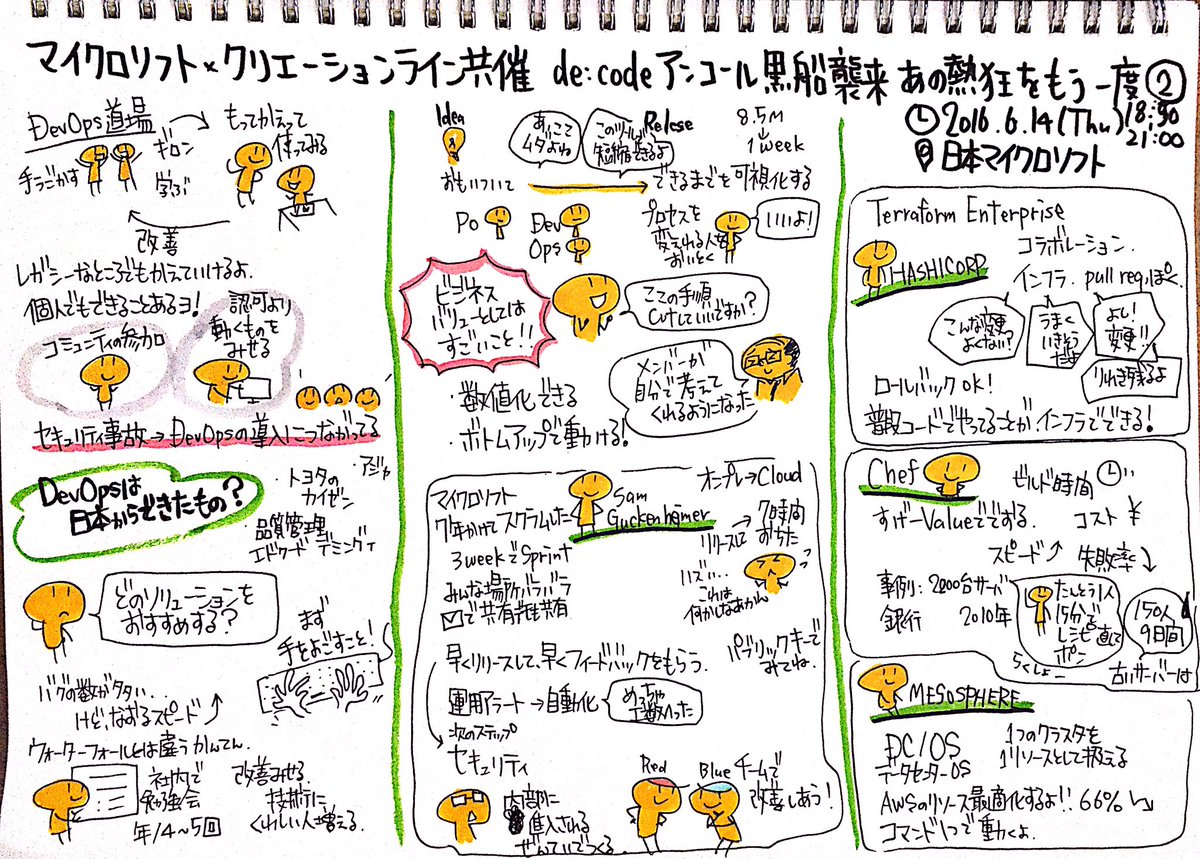 マイクロソフト×クリエーションライン共催 de:code アンコール 黒船襲来 あの熱狂をもう一度②
2016.6.14(Thu) 18:30
21:00
日本マイクロソフト
DevOps道場
手うごかす
ギロン
学ぶ
もってかえって
使ってみる
改善
レガシーなところでもかえていけるよ.
個人でもできることあるヨ!
コミュニティの参加
認可より
動くものを
みせる
セキュリティ事故→DevOpsの導入につながってる
DevOpsは
日本からできたもの?
・トヨタの
カイゼン
・アジャ
・品質管理
エドワード デミング
どのソリューションを
おすすめする?
まず
手をよごすこと!
バグの数がタタい...
けど、なおするスピード↑
ウォーターフォールとは違うかんてん.
社内で
勉強会
年/4~5回
改善みせる.
技術に
くわしい人増える.
Idea
あ、ここ
ムダよね
このツールが
短縮できるよ
Relese
8.5M
↓
1week
おもいついて
できるまでを可視化する
Po
Dev
Ops
プロセスを
変えれる人を
おいとく
いいよ!
ビジネス
バリューとしては
すごいこと!!
ここの手順
Cutしていいですか?
メンバーが
自分で考えて
くれるようになった
・数値化できる
・ボトムアップで動ける!
マイクロソフト
7年かけてスクラムした
3weekでSprint
みんな場所バラバラ
Sam
Guckenheimer
オンプレ→Cloud
リリースに→7時間
おちた
ハズい...
これは
何かしなあかん
早くリリースして、早くフィードバックをもらう.
パブリックキーで
みてね.
運用アラート→自動化
めっちゃ
工数へった
次のステップ
セキュリティ
内部に
進入される
ぜんていでつくる.
Red
Blue
チームで
改善しあう!
Terraform Enterprise
HASHICORP
コラボレーション.
インフラ. pull reqぽく.
こんな変更
よくない?
うまく
いきそう
だよ
よし!
変更!!
りれき残るよ
ロールバックOK!
普段コードでやってることがインフラでできる!
Chef
ビルド時間
すげーValueでてする.
コスト ¥
スピード↑
失敗率↓
事例: 2000台サーバ
銀行 2010年
たんとう1人
15分で
レシピ直して
ポン
らくしょー
150人
9日間
古いサーバーは
MESOSPHERE
DC/OS
データセンターOS
1つのクラスタを
1リソースとして扱える
AWSのリソース最適化するよ!! 66%↓
コマンド1つで動くよ.